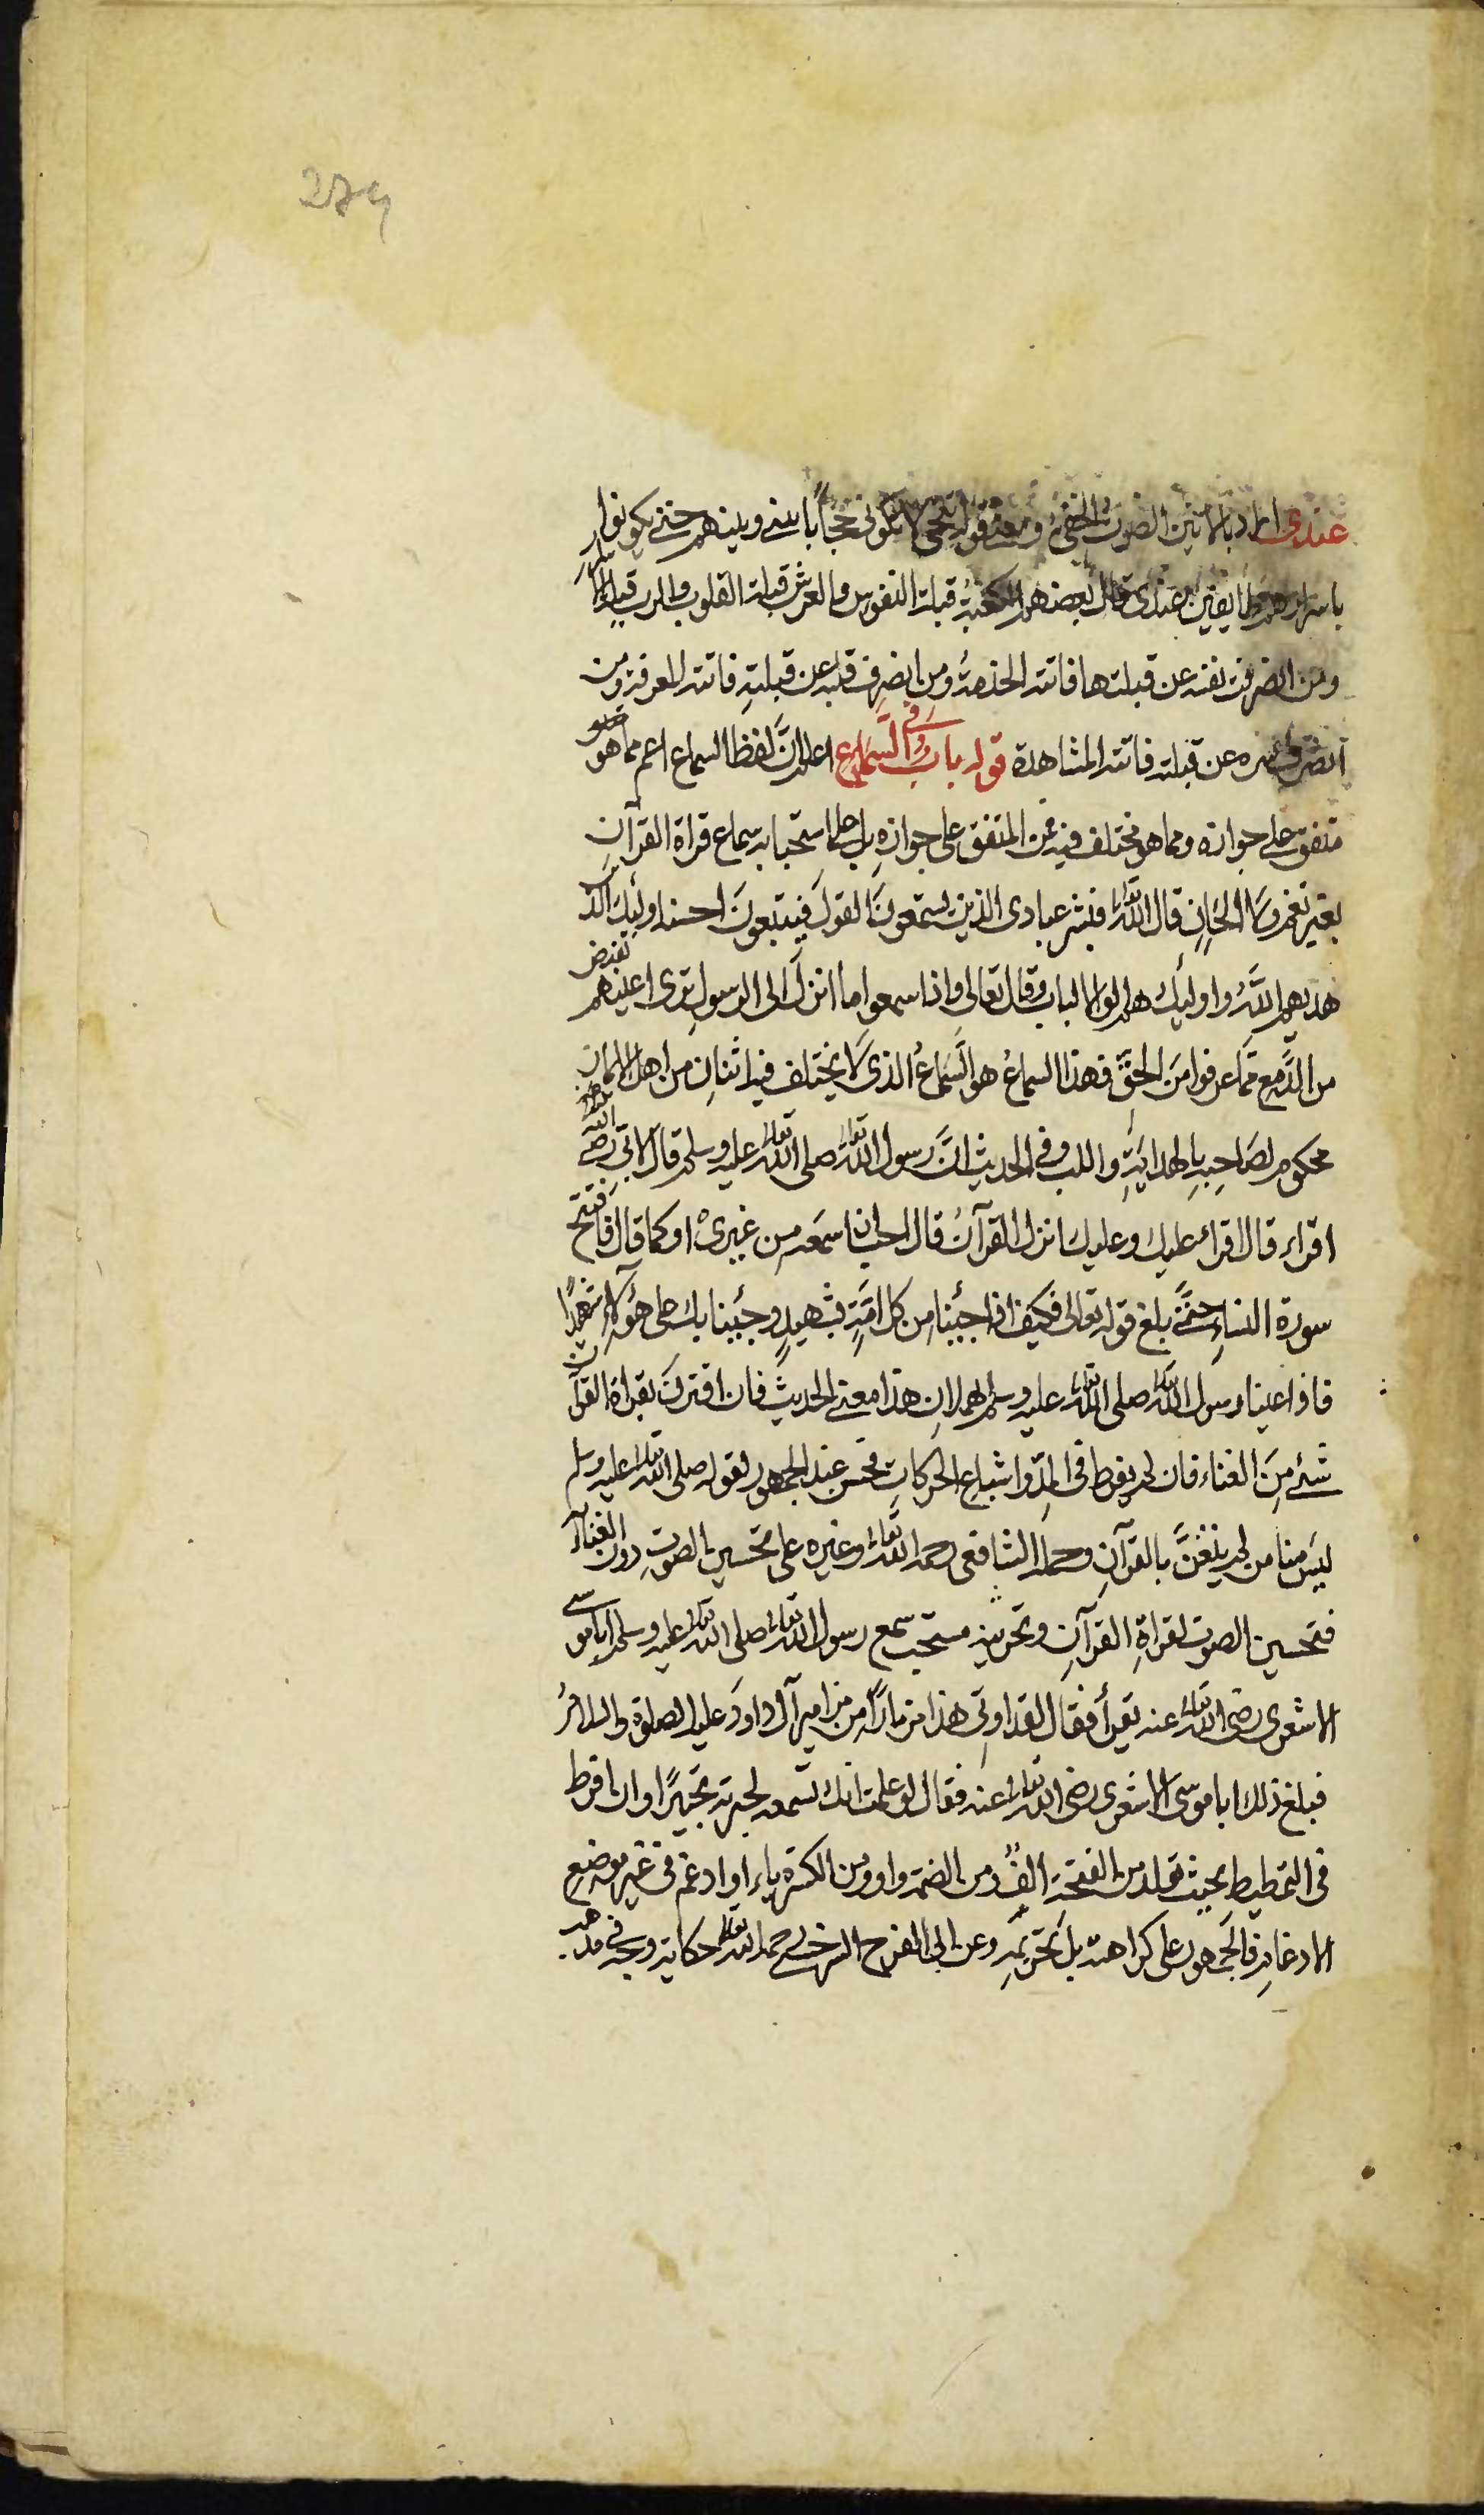 279
عندى المراد بالانين الصوت الخفى ومعنى قوله تنحى لا تكونى حجاباً بينى وبينهم حتى يكونوا
باسرارهم طايفين عندى قال بعضهم الكعبة قبلة النفوس والعرش قبلة القلوب والرب قبلة الاسرار
ومن انصرفت نفسه عن قبلتها فاتته الخدمة ومن انصرف قلبه عن قبلته فاتته المعرفة ومن
انصرف سره عن قبلته فاتته المشاهدة قوله باب فى السماع اعلم ان لفظ السماع اعم مما هو
متفق على جوازه ومما هو مختلف فيه فمن المتفق على جوازه بل على استحبابه سماع قراة القرآن
بغير نغم ولا الحان قال الله تعالى فبشر عبادى الذين يستمعون القول فيتبعون احسنه اولئك الذين
هديهم الله واوليك هم اولوا الالباب وقال تعالى واذا سمعوا ما انزل الى الرسول ترى اعينهم تفيض
من الدمع مما عرفوا من الحق فهذا السماع هو السماع الذى لا يختلف فيه اثنان من اهل الايمان
محكوم لصاحبه بالهداية واللب وفى الحديث ان رسول الله تعالى صلى الله تعالى عليه وسلم قال لابى رضى الله عنه
اقراء قال اقراء عليك وعليك انزل القرآن قال احب ان اسمعه من غيرى او كما قال فافتتح
سورة النساء حتى بلغ قوله تعالى فكيف اذا جئنا من كل امة بشهيد وجئنا بك على هؤلاء شهيدًا
فاذا عينا رسول الله تعالى صلى الله تعالى عليه وسلم تهملان هذا معنى الحديث فان اقترن بقراة القرآن
شئ من الغناء فان لم يفرط فى المد واشباع الحركات فحسن عند الجمهور لقوله صلى الله تعالى عليه وسلم
ليس منا من لم يتغن بالقرآن وحمله الشافعى رحمه الله تعالى وغيره على تحسين الصوت دون الغناء
فتحسين الصوت لقراة القرآن وتحزينه مستحب سمع رسول الله تعالى صلى الله تعالى عليه وسلم ابا موسى
الاشعرى رضى الله تعالى عنه يقرأ فقال لقد اوتى هذا مزمارًا من مزامير آل داود عليه الصلوة والسلام
فبلغ ذلك ابا موسى الاشعرى رضى الله تعالى عنه فقال لو علمت انك تسمعه لحبرته تحبيرًا وان افرط
فى التمطيط بحيث تولد من الفتحة الف ومن الضمة واو ومن الكسرة ياء او ادغم فى غير موضع
الادغام فالجمهور على كراهته بل تحريمه وعن ابى الفرج السرخسى رحمه الله تعالى حكاية وجه فى مذهب